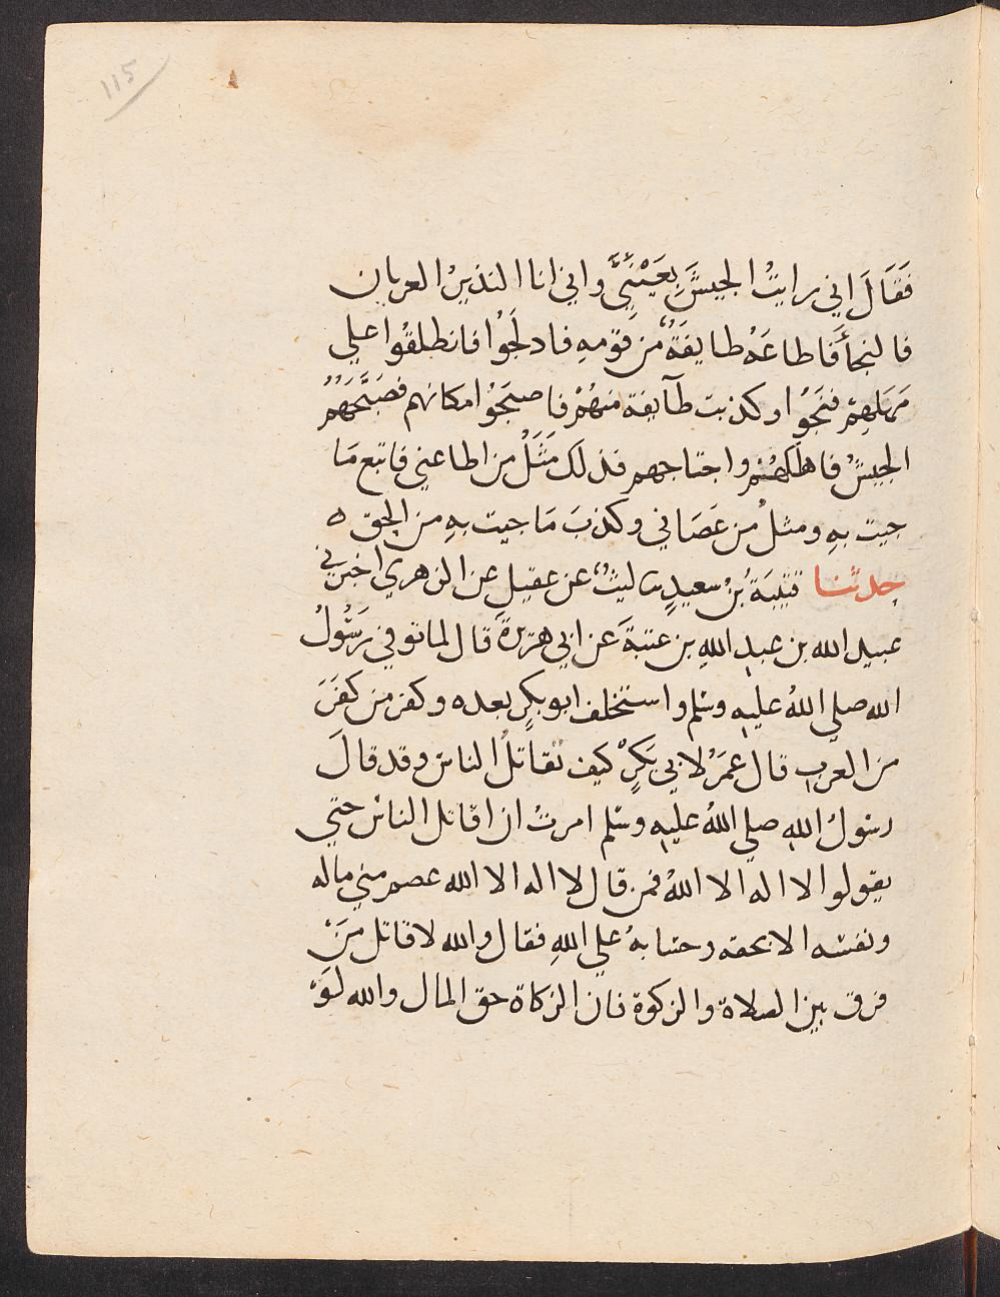 115
فَقَالَ اِني رايتُ الجيشَ بِعَيْنَيَّ واني انا النذيرُ العريان
فالنجأَ فَاطاعَهُ طايفَةٌ من قومهِ فادلَجُوا فانطلقُوا علي
مَهَلهِمْ فنجَوا وكذبت طآيفة منهُمْ فاصبَحُوا مكانهم فصَبَّحَهُمُ
الجيشُ فاهلكهُمْ واجتاحهم فذلك مَثَلُ من اطاعني فاتبع مَا
جيت بهِ ومثلُ من عَصَاني وكذبَ مَا جيت بهِ من الحق ه
حدثنا قتيبَةُ بنُ سعيدٍ نا ليثٌ عن عقيل عن الزهري اخبرني
عبيد الله بن عبدِ اللهِ بن عتبةَ عن ابي هريرةَ قال لما توفي رَسُولُ
الله صلي اللهُ عليهِ وسلم واستخلف ابو بكرٍ بعده وكفر من كفَرَ
من العربِ قال عمَرُ لابي بَكرٍ كيف نقاتلُ الناسَ وقد قالَ
رسُولُ اللهِ صلي اللهُ عليهِ وسلم امرتُ ان اقاتل الناسَ حتي
يقولوا لا اله الا اللهُ فمن قال لا اله الا الله عصم مني ماله
ونفسَه الا بحقه وحسابهُ علي اللهِ فقال والله لاقاتل مَنْ
فرق بين الصلاة والزكوة فان الزكاة حق المال والله لَوْ